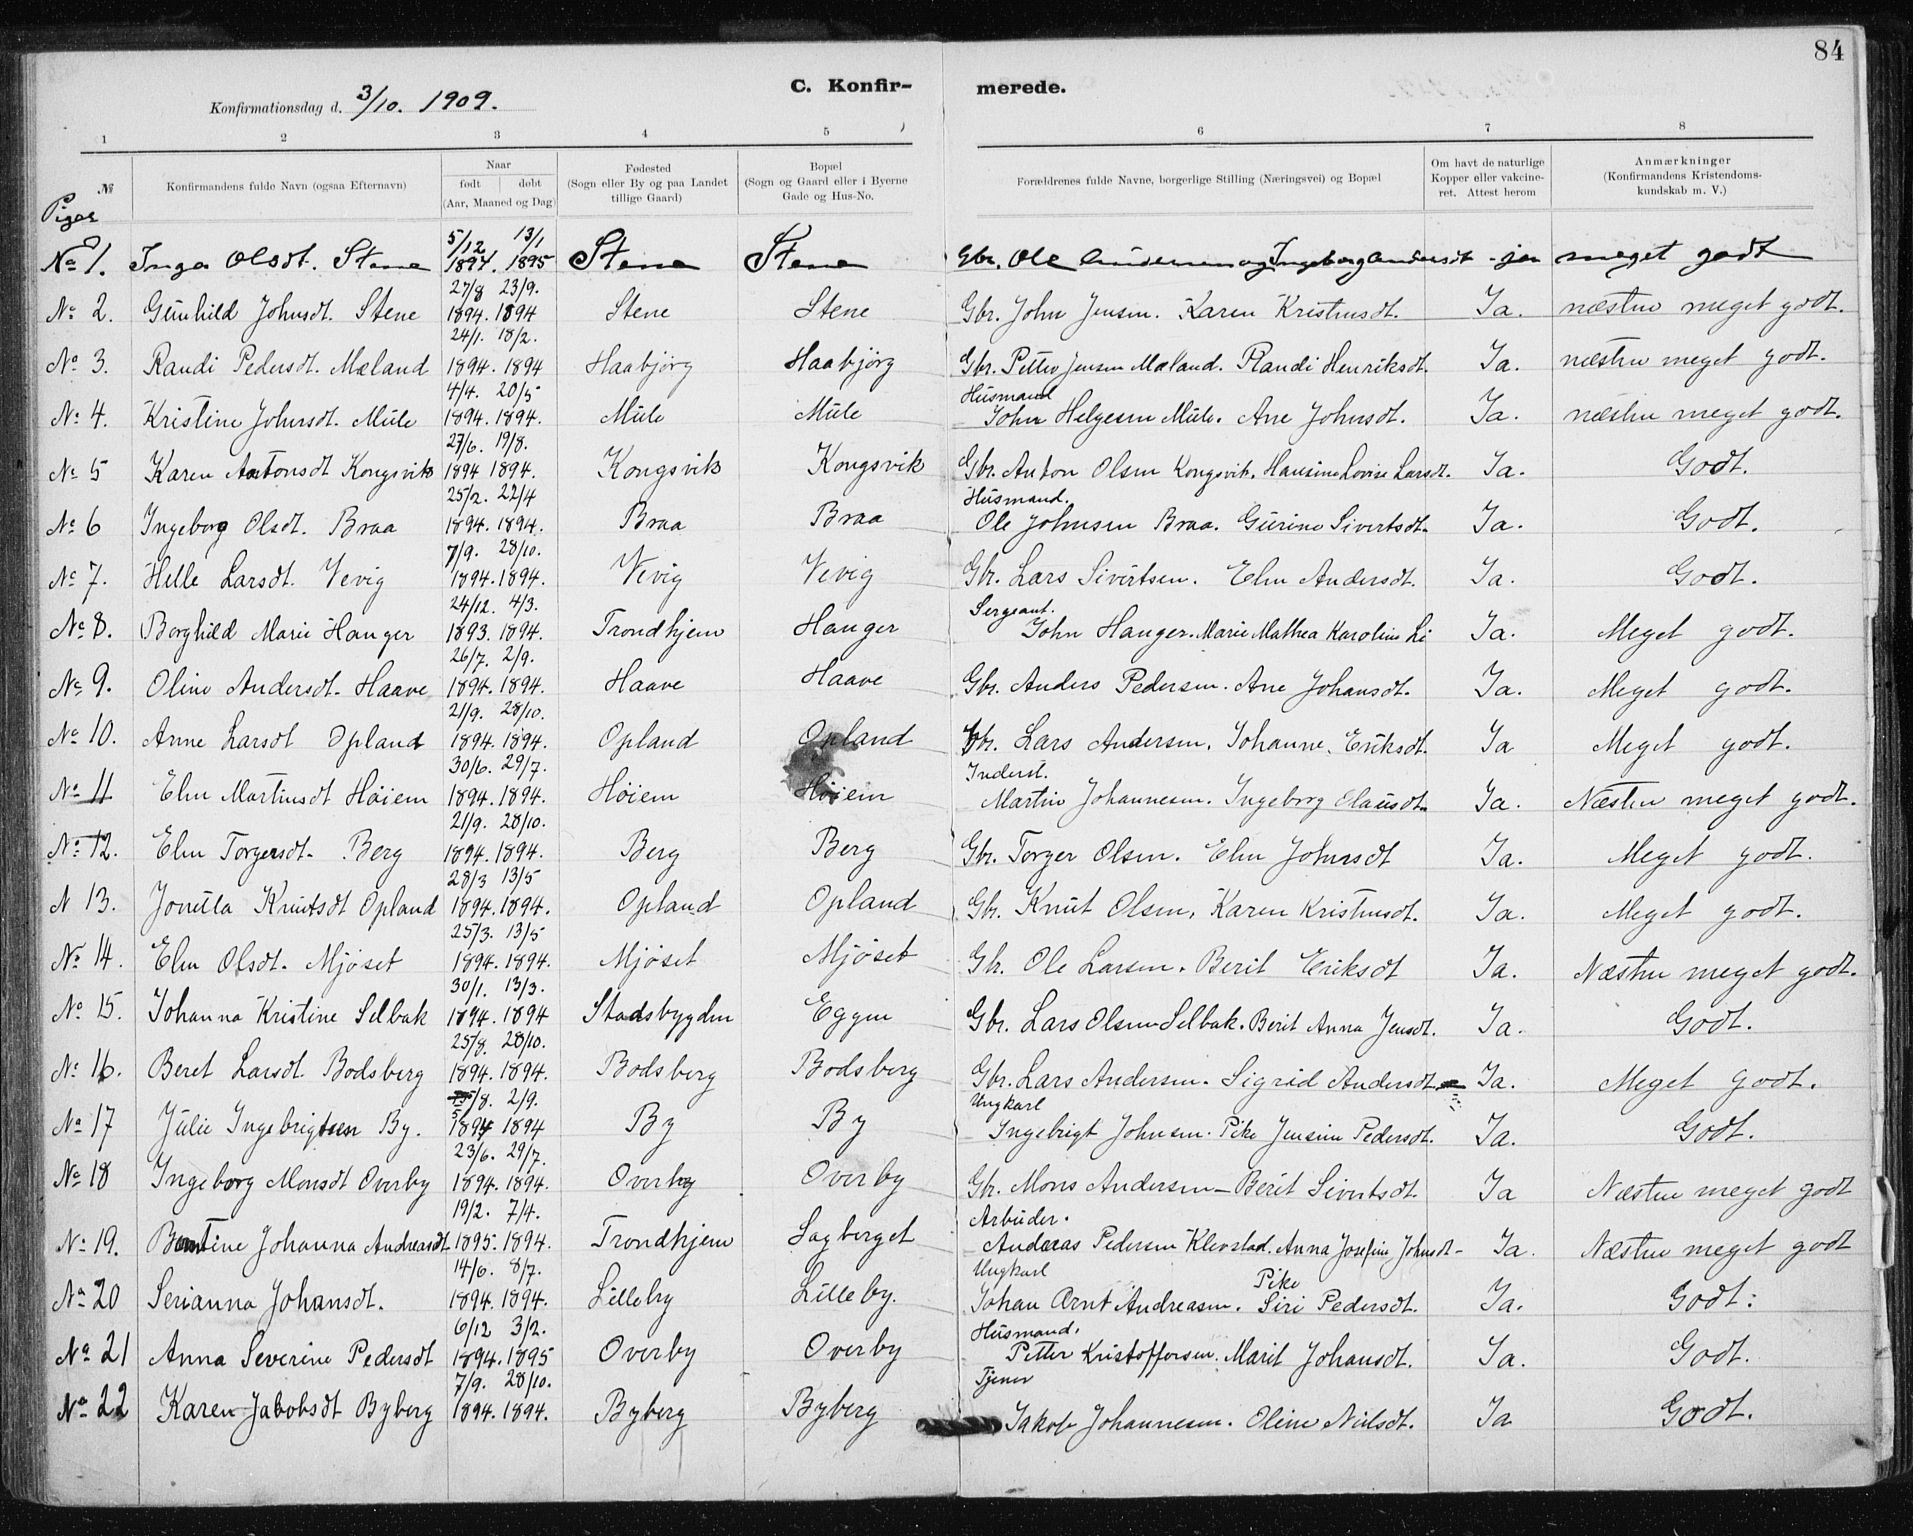 84
C. Konfirmerede.
Konfirmationsdag d. 3/10. 1909.
1 2 3 4 5 6 7 8
№ Konfirmandens fulde Navn (ogsaa Efternavn) Naar født døbt (Aar, Maaned og Dag) Fødested (Sogn eller By og paa Landet tillige Gaard) Bopæl (Sogn og Gaard eller i Byerne Gade og Hus-No. Forældrenes fulde Navne, borgerlige Stilling (Næringsvei) og Bopæl Om havt de naturlige Kopper eller vakcineret. Attest herom Anmærkninger (Konfirmandens Kristendomskundskab m. V.)
Piger
No 1. Inga Olsdt. Stene 5/12 1894 13/1 1895 Stene Stene Gbr. Ole Andersen og Ingeborg Andersdt - ja meget godt
No 2. Gunhild Johnsdt. Stene 27/8 1894. 23/9. 1894 Stene Stene Gbr. John Jensen. Karen Kristensdt. Ja. næsten meget godt.
No 3. Randi Pedersdt. Mæland 24/1. 1894. 18/2. 1894 Haabjörg Haabjörg Gbr. Petter Jensen Mæland. Randi Henriksdt. Ja. næsten meget godt.
No 4. Kristine Johnsdt. Mule 4/4. 1894. 20/5 1894. Mule Mule Husmand John Helgesen Mule. Ane Johnsdt. Ja. næsten meget godt.
No 5 Karen Antonsdt Kongsvik 27/6. 1894 19/8. 1894. Kongsvik Kongsvik Gbr. Anton Olsen Kongsvik. Hansine Lovise Larsdt. Ja. Godt.
No 6 Ingeborg Olsdt. Braa 25/2. 1894. 22/4 1894. Braa Braa Husmand. Ole Johnsen Braa. Gurine Sivertsdt. Ja. Godt.
No 7. Helle Larsdt. Vevig 7/9. 1894. 28/10. 1894. Vevig Vevig Gbr. Lars Sivertsen. Elen Andersdt. Ja. Godt.
No 8. Borghild Marie Hanger 24/12. 1893. 4/3. 1894. Trondhjem Hanger Sergeant. John Hanger. Marie Mathea Karoline Li Ja. Meget godt.
No 9. Oline Andersdt. Haave 26/7. 1894. 2/9. 1894. Haave Haave Gbr. Anders Pedersen. Ane Johansdt. Ja. Meget godt.
No 10. Anne Larsdt Opland 21/9. 1894. 28/10. 1894. Opland Opland Gbr. Lars Andersen. Johanne Eriksdt. Ja Meget godt.
No 11 Elen Martinsdt Höiem 30/6. 1894. 29/7. 1894. Höiem Höiem Inderst. Martin Johannesen. Ingeborg Clausdt. Ja. Næsten meget godt.
No 12. Elen Torgersdt. Berg 21/9. 1894. 28/10. 1894. Berg Berg Gbr. Torger Olsen. Elen Johnsdt Ja. Meget godt.
N 13. Jonilla Knutsdt Opland 28/3 1894. 13/5 1894. Opland Opland Gbr. Knut Olsen, Karen Kristensdt. Ja. Meget godt.
No 14. Elen Olsdt. Mjöset 25/3. 1894. 13/5 1894. Mjöset Mjöset Gbr. Ole Larsen. Berit Eriksdt Ja. Næsten meget godt.
No 15. Johanna Kristine Selbak 30/1. 1894. 13/3. 1894 Stadsbygden Eggen Gbr. Lars Olsen Selbak. Berit Anna Jensdt. Ja. Godt.
No 16. Beret Larsdt. Bodsberg 25/8. 1894. 28/10. 1894. Bodsberg Bodsberg Gbr. Lars Andersen. Sigrid Andersdt. Ja. Meget godt.
No 17 Julie Ingebrigtsen By. 5/8. 1894 2/9. 1894 By By Ungkarl Ingebrigt Johnsen. Pike Jensine Pedersdt. Ja. Godt.
No 18 Ingeborg Monsdt Overby 23/6. 1894. 29/7. 1894. Overby Overby Gbr. Mons Andersen - Berit Sivertsdt Ja Næsten meget godt
No 19. Berntine Johanna Andreasdt 19/2. 1895. 7/4. 1894. Trondhjem Sagberget Arbeider. Andreas Pedersen Klevstad. Anna Josefine Johnsdt - Ja. Næsten meget godt
No 20 Serianna Johansdt. 14/6. 1894. 8/7. 1894. Lilleby Lilleby. Ungkarl Johan Arnt Andreasen. Pike Siri Pedersdt. Ja. Godt.
No 21 Anna Severine Pedersdt 6/12 1894. 3/2. 1895 Overby Overby Husmand. Petter Kristoffersen. Marit Johansdt. Ja. Godt.
No 22 Karen Jakobsdt Byberg 7/9. 1894. 28/10. 1894. Byberg Byberg Tjener Jakob Johannesen. Oline Nielsdt. Ja Godt.